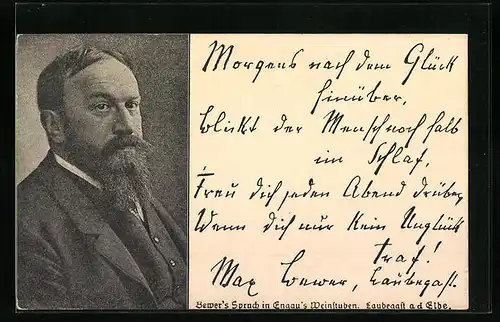 Morgens nach dem Glück
hinüber,
Blickt der Mensch noch halb
im Schlaf,
Freu dich jeden Abend drüber,
Wenn dich nur kein Unglück
traf!
Max Bewer, Laubegast.
Bewer's Spruch in Weinstuben. Laubegast a. d Elbe.